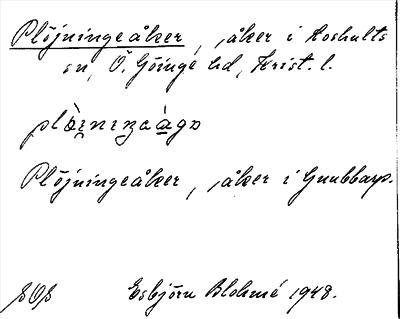 Plöjningeåker, åker i Loshults
sn, Ö. Göinge hd, Krist. l.
Plöjningeåker, åker i Gnubbarp.
SOS Esbjörn Blohmé 1948.